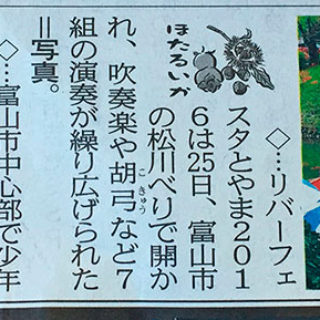 ほたるいか
◇…リバーフェ
スタとやま201
6は25日、富山市
の松川べりで開か
れ、吹奏楽や胡弓(こきゅう)など7
組の演奏が繰り広げられた
＝写真。
◇…富山市中心部で少年